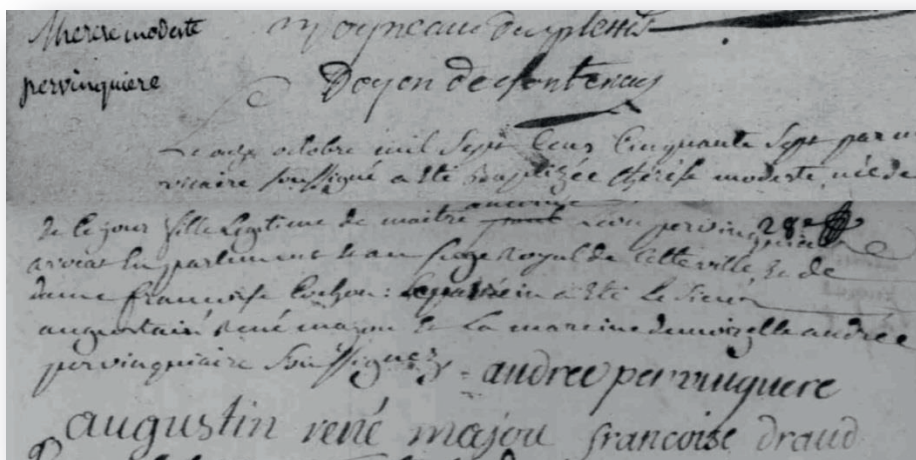 Therese modeste
pervinquiere
Moyneau duplessis
Doyen de fontenay
Le onze octobre mil Sept Cens Cinquante Sept par
vicaire soussigné a été baptizée thérèse modeste née de
de ce jour fille Legitime de maitre pervinquiere
avocat En parlement & au siege royal de Cette ville & de
dame francoise Cochon : Le parrein a été Le Sieur
augustin rené majou & La mareine demoizelle andrée
pervinquiaire Soussignez
andree pervinquiere
augustin rené majou francoise draud